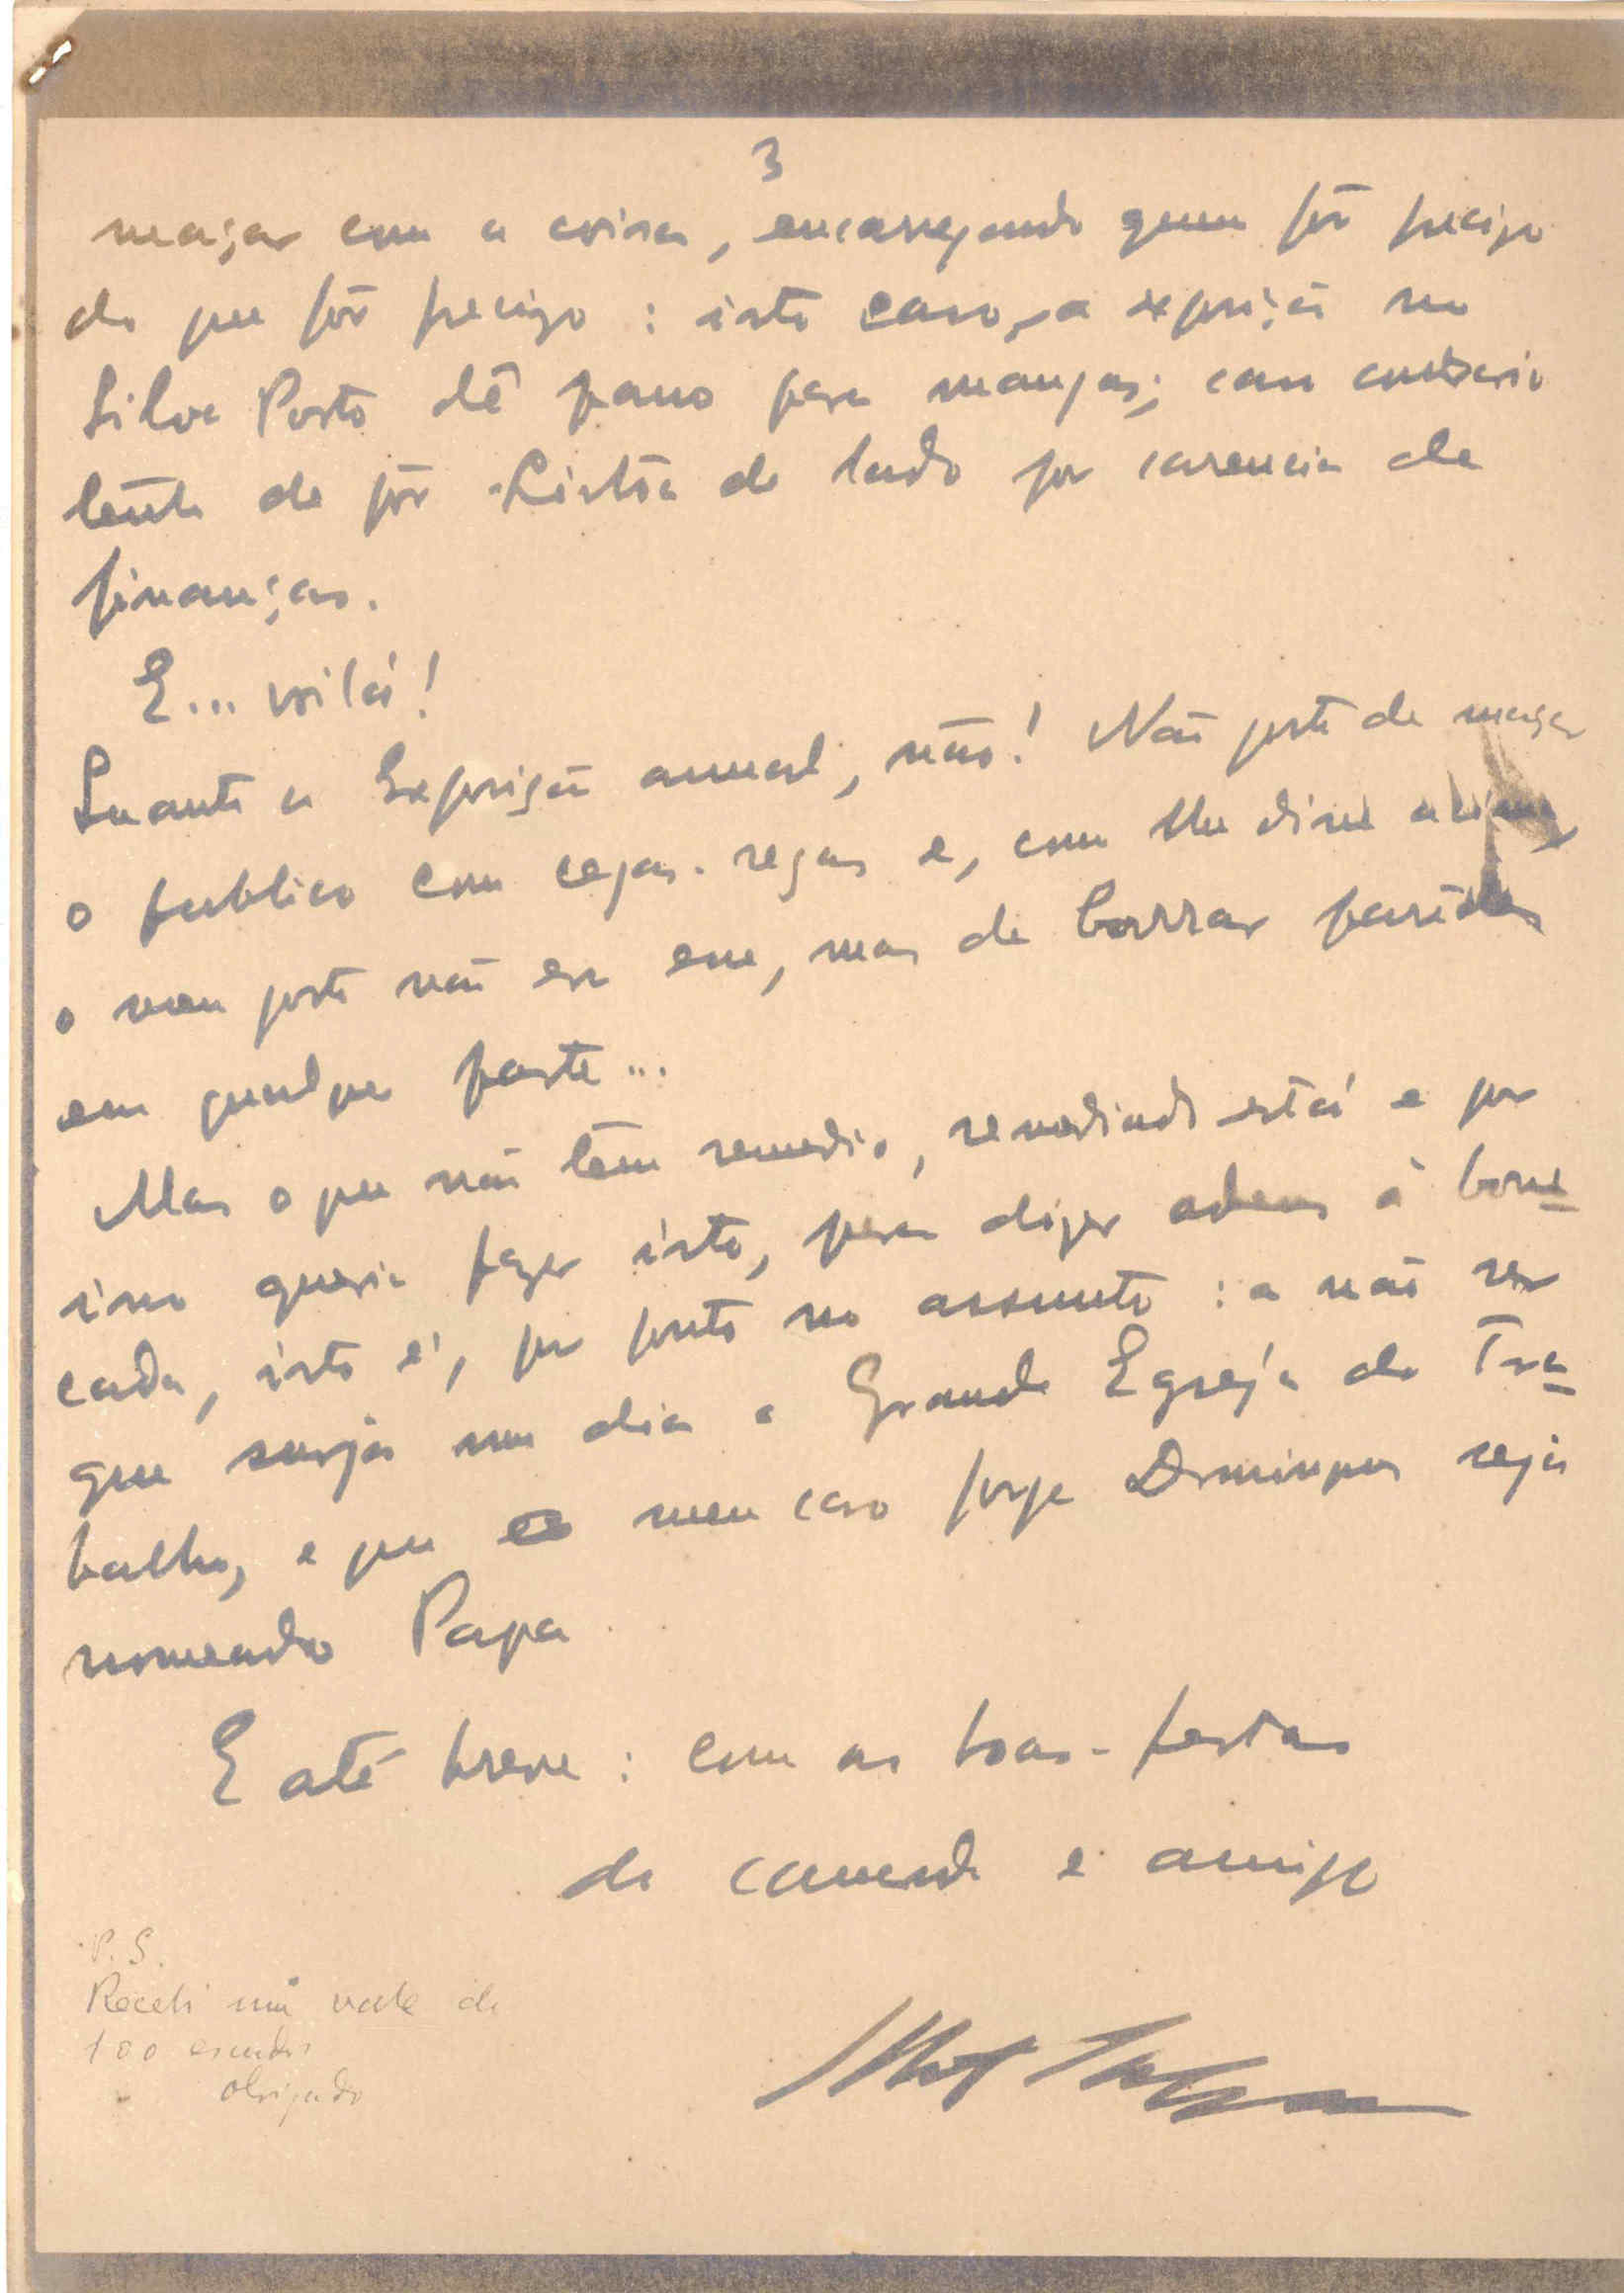 3
maçar com a coisa, encarregando quem fôr preciso
do que fôr preciso : isto caso, a exposição no
Silva Porto dê pano para mangas; caso contrario
tenho de pôr Lisbôa de lado por carencia de
finanças.
E... voilá!
Quanto a Exposição annual, não! Não gosto de maçar
o publico com cegas-regas e, como lhe disse
o meu gosto não era esse, mas de borrar parêdes
em qualquer parte...
Mas o que não têm remedio, remediado está e por
isso queria fazer isto, para dizer adeus à bone-
cada, isto é, pôr ponto no assunto : a não ser
que surja um dia a Grande Egreja do Tra-
balho, e que o meu caro Jorge Domingues seja
nomeado Papa
E até breve : com as boas-festas
do camarada e amigo
P.S.
Recebi um vale de
100 escudos
obrigado